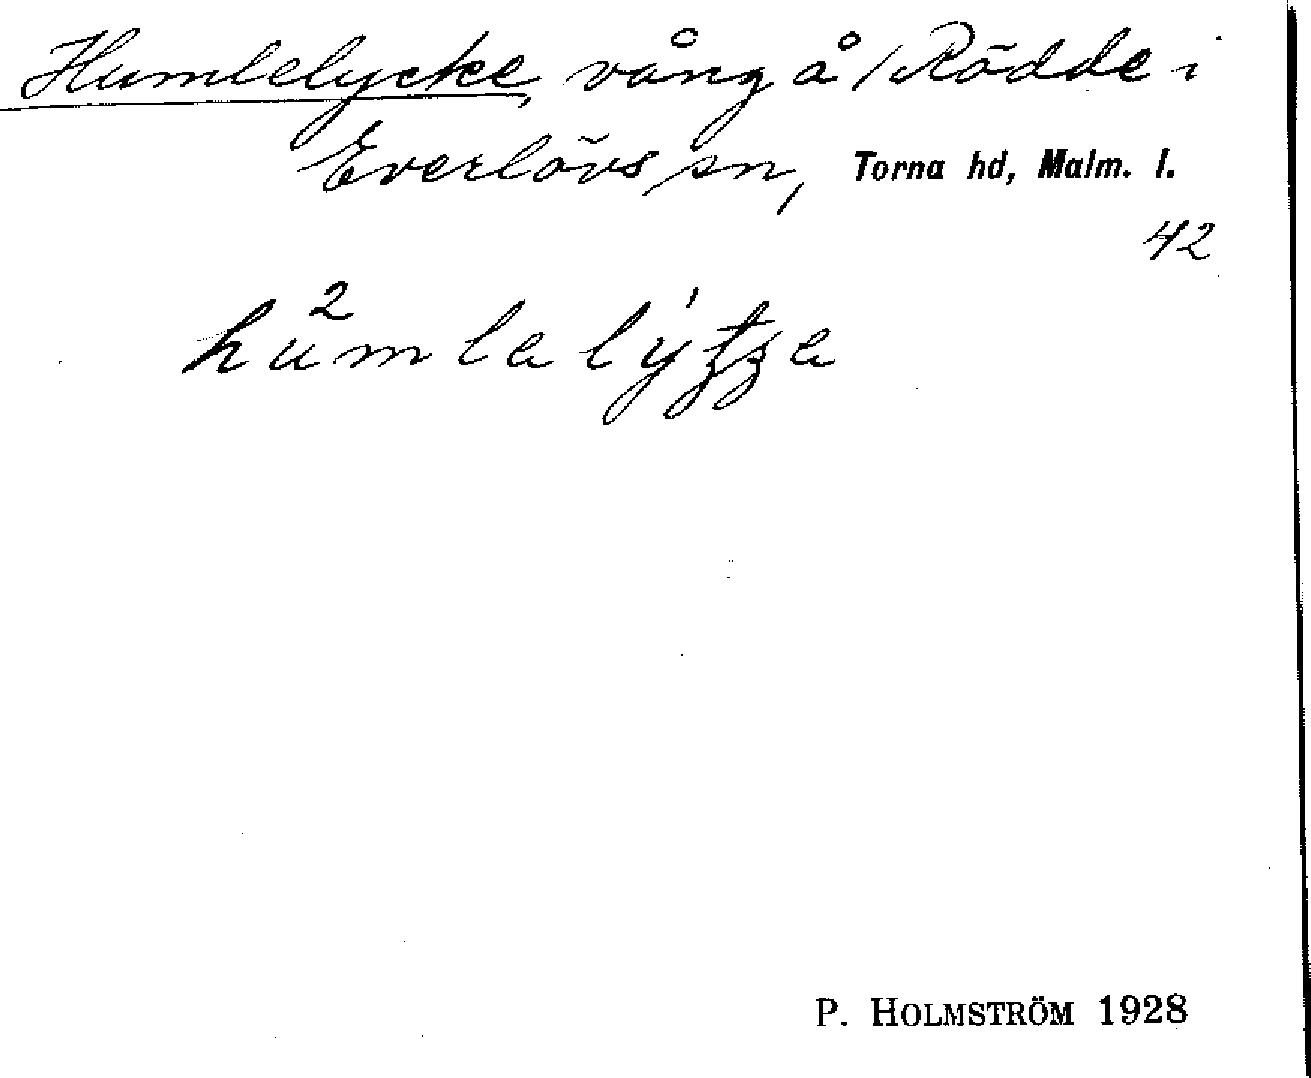 Humlelycke, vång å Rödde i
Everlövs sn, Torna hd, Malm. l.
42
P. HOLMSTRÖM 1928